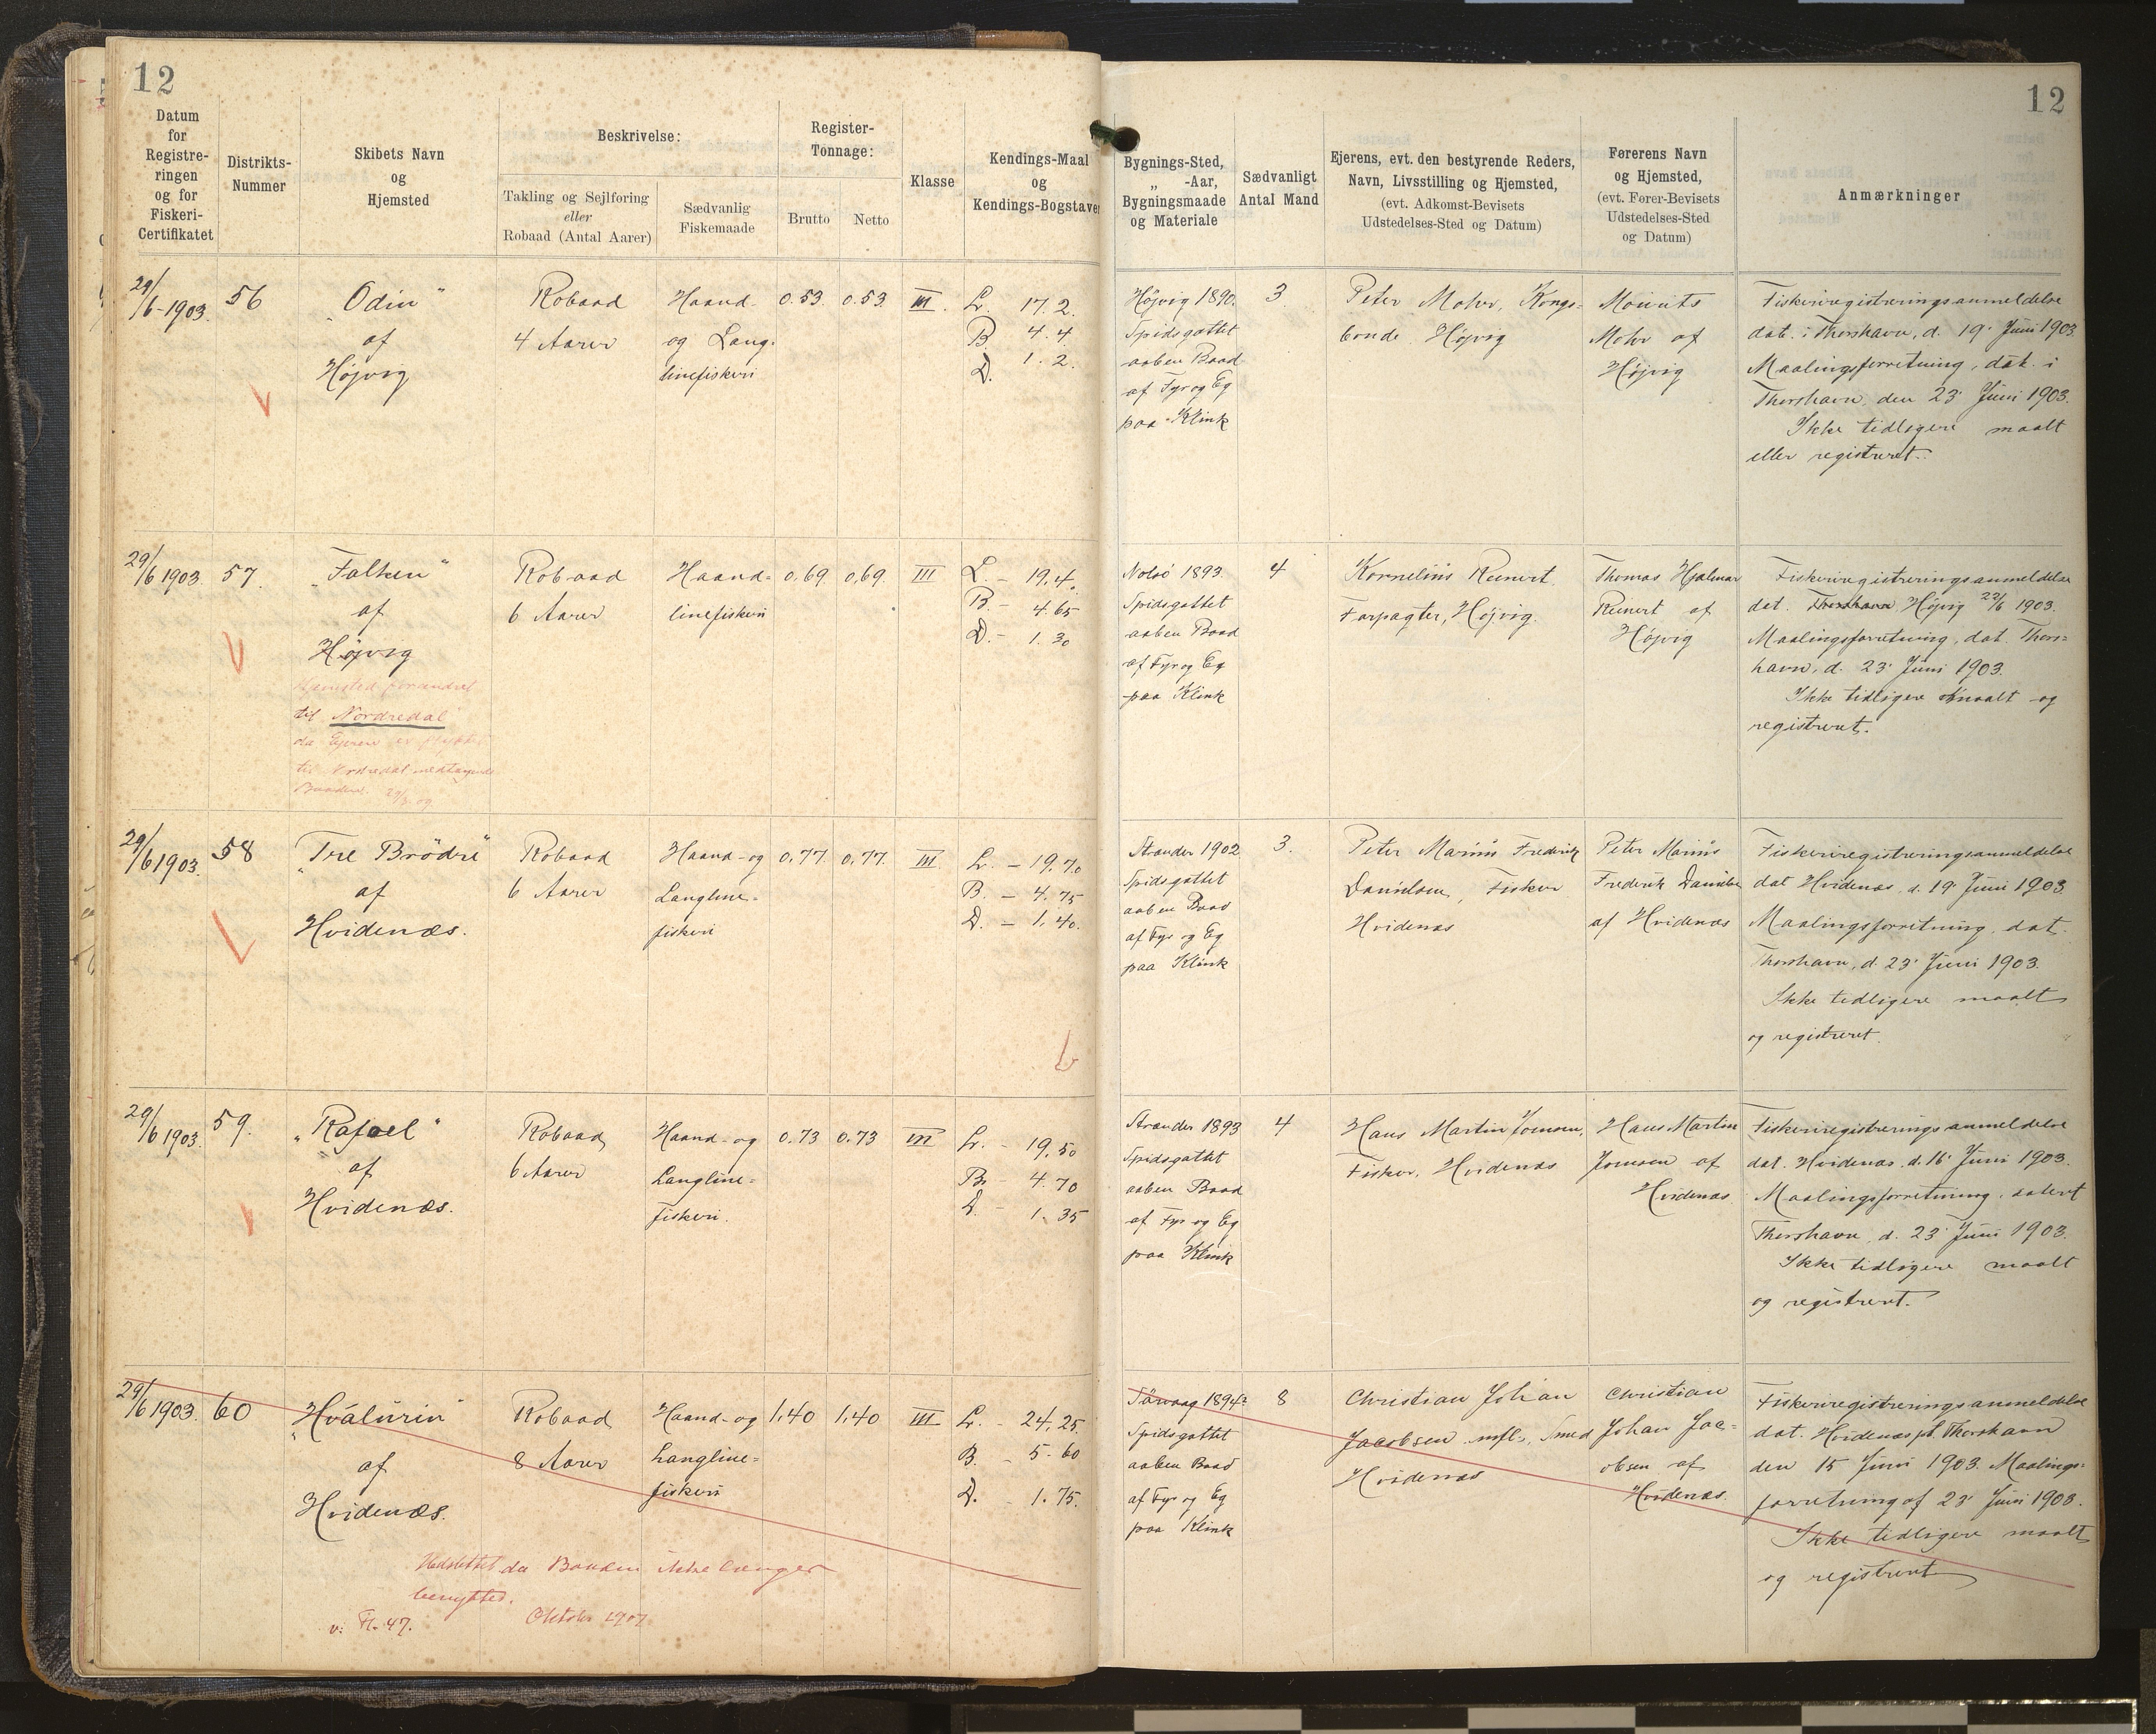 12
12
Datum
for
Registre-
ringen
og for
Fiskeri-
Certifikatet
Distrikts-
Nummer
Skibets Navn
og
Hjemsted
Beskrivelse:
Takling og Sejlføring
eller
Robaad (Antal Aarer)
Sædvanlig
Fiskemaade
Register-
Tonnage:
Brutto
Netto
Klasse
Kendings-Maal
og
Kendings-Bogstaver
Bygnings-Sted,
„ -Aar,
Bygningsmaade
og Materiale
Sædvanligt
Antal Mand
Ejerens, evt. den bestyrende Reders,
Navn, Livsstilling og Hjemsted,
(evt. Adkomst-Bevisets
Udstedelses-Sted og Datum)
Førerens Navn
og Hjemsted,
(evt. Fører-Bevisets
Udstedelses-Sted
og Datum)
Anmærkninger
29/6-1903.
56
„Odin“
af
Højvig
Robaad
4 Aarer
Haand-
og Lang-
linefiskeri
0.53
0.53
III.
L. 17.2.
B. 4.4.
D. 1.2.
Højvig 1890.
Spidsgattet
aaben Baad
af Fyr og Eg
paa Klink
3
Peter Mohr, Kongs-
bonde Højvig
Mouritz
Mohr af
Højvig
Fiskeriregistreringsanmeldelse
dat. i Thorshavn, d. 19' Juni 1903.
Maalingsforretning, dat. i
Thorshavn, den 23' Juni 1903.
Ikke tidligere maalt
eller registreret.
29/6 1903
57.
„Falken“
af
Højvig
Hjemsted forandret
til Nordredal
da Ejeren er flyttet
til Nordredal medtagende
Baaden.
Robaad
6 Aarer
Haand-
linefiskeri
0.69
0.69.
III
L. - 19.4.
B. - 4.65
D. - 1.30
Nolsö 1893.
Spidsgattet
aaben Baad
af Fyr og Eg
paa Klink
4
Kornelius Reinert
Forpagter, Højvig.
Thomas Hjalmar
Reinert af
Højvig
Fiskeriregistreringsanmeldelse
dat. Thorshavn Højvig 22/6 1903.
Maalingsforretning, dat. Thors-
havn, d. 23' Juni 1903.
Ikke tidligere maalt og
registreret.
29/6 1903.
58
„Tre Brödre“
af
Hvidenæs.
Robaad
6 Aarer
Haand- og
Langline-
fiskeri
0.77
0.77.
III
L. - 19.70
B. - 4.75
D. - 1.40.
Strander 1902
Spidsgattet
aaben Baad
af Fyr og Eg
paa Klink
3.
Peter Marius Frederik
Danielsen, Fisker
Hvidenæs
Peter Marius
Frederik Danielsen
af Hvidenæs
Fiskeriregistreringsanmeldelse
dat Hvidenæs, d. 19' Juni 1903
Maalingsforretning, dat.
Thorshavn, d. 23' Juni 1903.
Ikke tidligere maalt
og registreret.
29/6 1903.
59.
„Rafael“
af
Hvidenæs.
Robaad
6 Aarer
Haand- og
Langline-
fiskeri.
0.73
0.73
III
L. - 19.50
B. - 4.70
D. - 1.35
Strander 1893
Spidsgattet
aaben Baad
af Fyr og Eg
paa Klink
4
Hans Martin Joensen,
Fisker, Hvidenæs
Hans Martin
Joensen af
Hvidenæs
Fiskeriregistreringsanmeldelse
dat. Hvidenæs, d. 16' Juni 1903.
Maalingsforretning, dateret
Thorshavn, d. 23' Juni 1903.
Ikke tidligere maalt
og registreret.
29/6 1903.
60
„Hválurin“
af
Hvidenæs.
Robaad
8 Aarer
Haand- og
Langline-
fiskeri
1.40
1.40
III
L. - 24.25.
B. - 5.60
D. - 1.75.
Sörvaag 1894?
Spidsgattet
aaben Baad
af Fyr og Eg
paa Klink
8
Christian Johan
Jacobsen mfl., Smed
Hvidenæs
Christian
Johan Jac-
obsen af
Hvidenæs.
Fiskeriregistreringsanmeldelse
dat. Hvidenæs pt. Thorshavn
den 15 Juni 1903. Maalings-
forretning af 23' Juni 1903.
Ikke tidligere maalt
og registreret
Udslettet da Baaden ikke længer
benyttes.
v: Fl. 47.
Oktober 1907